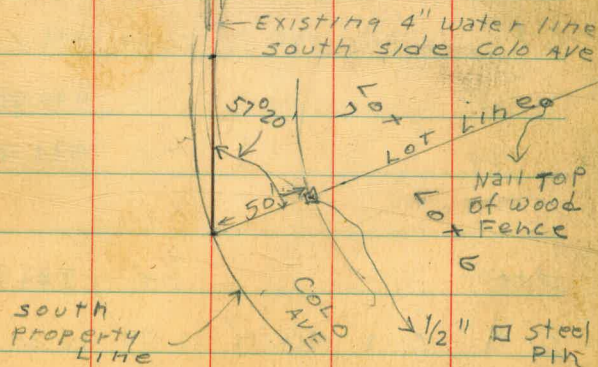 Existing 4" water line
south side Colo Ave
57° 20'
Lot
7
Lot Line
50'
Nail Top
of wood
Fence
Lot
6
COLO
AVE
South
Property
Line
1/2" □ steel
PIN